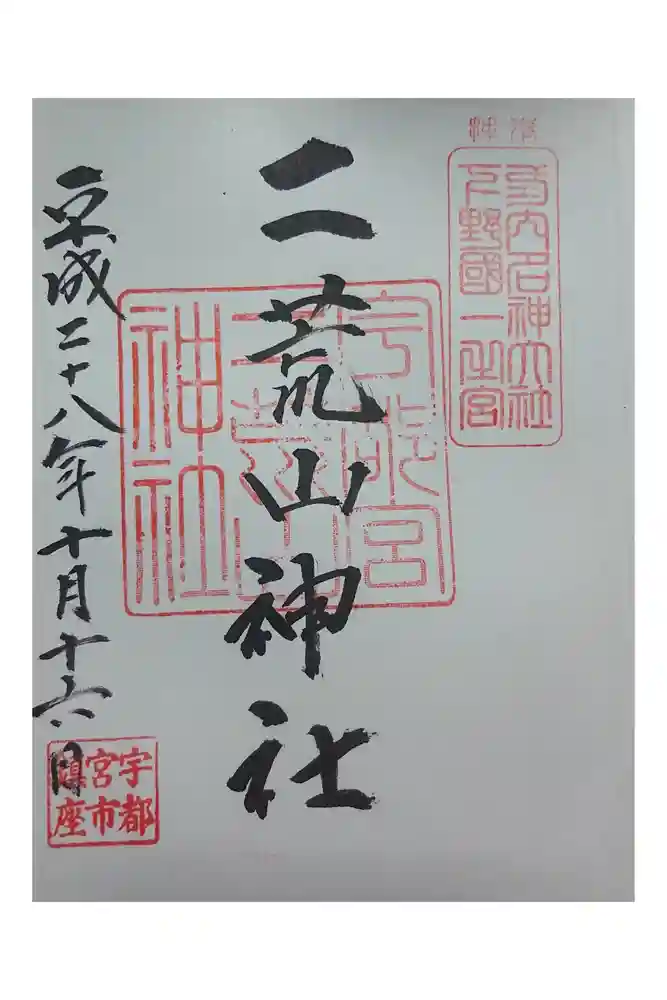 式内名神大社
下野國一之宮
二荒山神社
宇都宮
二荒山
神社
平成二十八年十月十六日
宇都
宮市
鎭座